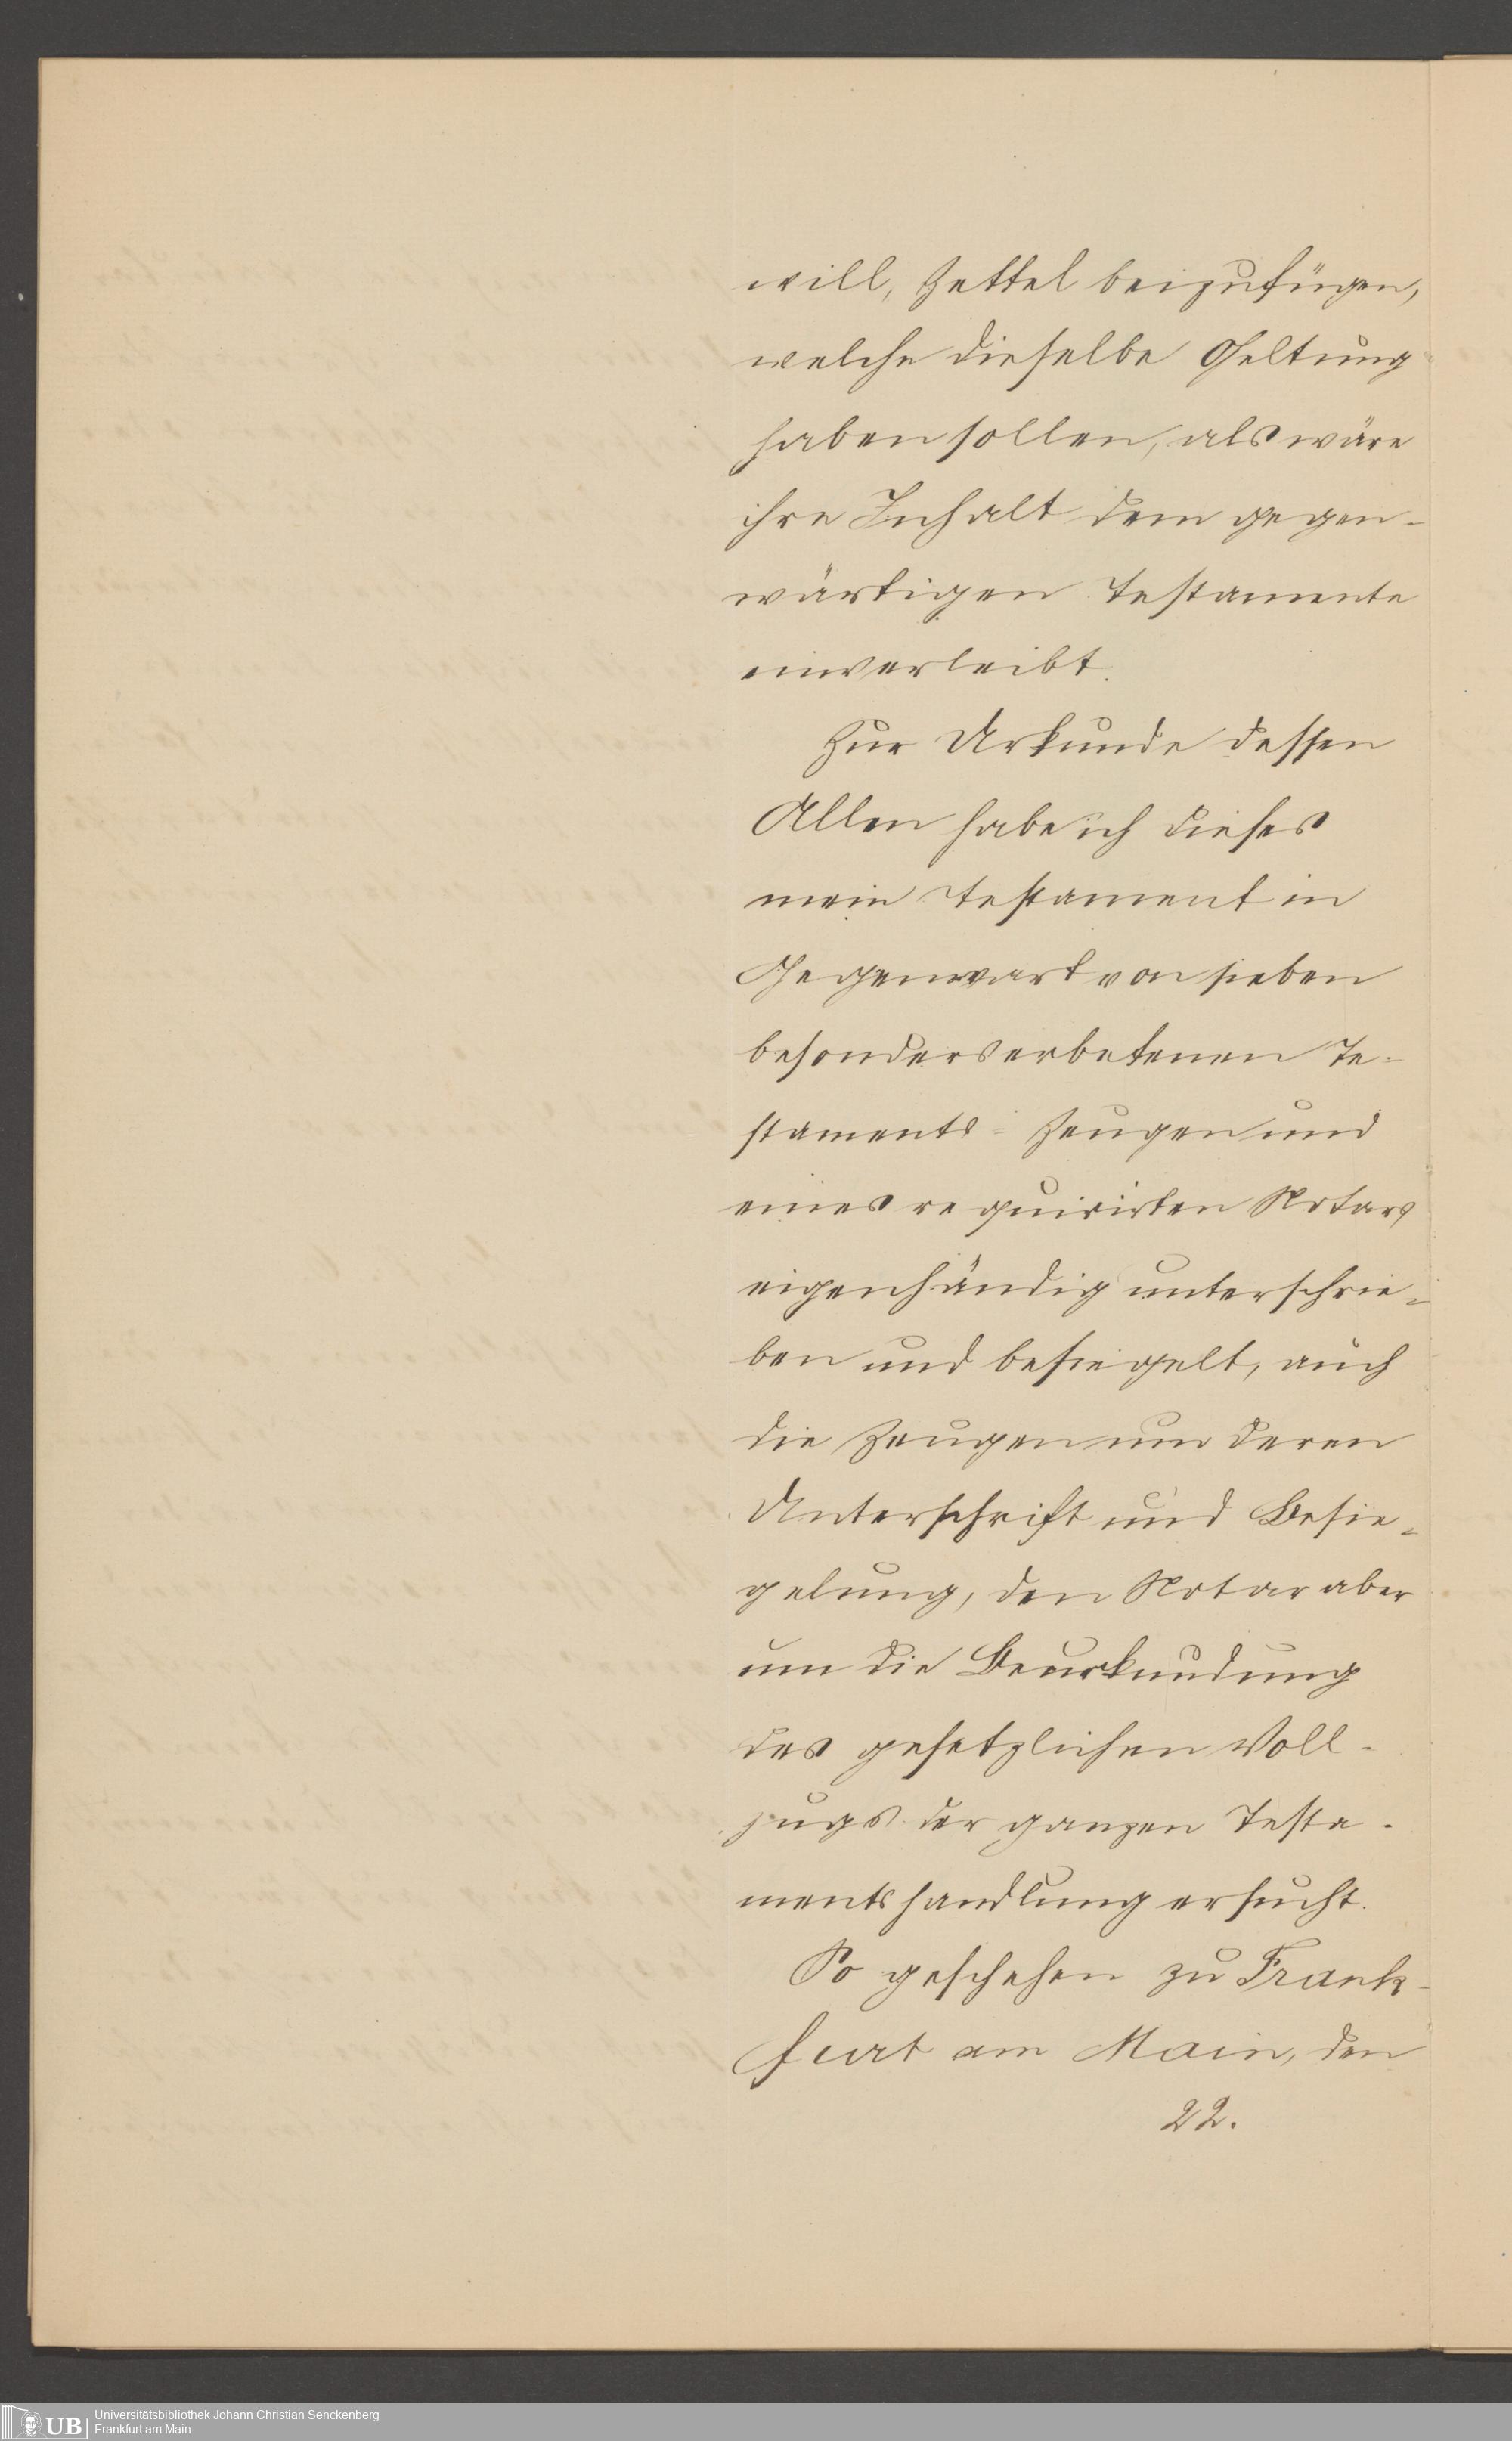 will, Zettel beizufügen,
welche dieselbe Geltung
haben sollen, als wäre
ihre Inhalt dem gegen-
wärtigen Testamente
einverleibt.
Zur Urkunde dessen
Allen habe ich dieses
mein Testament in
Gegenwart von sieben
besonders erbetenen Te-
staments-Zeugen und
eines requirirten Notars
eigenhändig unterschrie-
ben und besiegelt, auch
die Zeugen um deren
Unterschrift und Besie-
gelung, den Notar aber
um die Beurkundung
des gesetzlichen Voll-
zugs der ganzen Testa-
mentshandlung ersucht.
So geschehen zu Frank-
furt am Main, den
22.
UB
Universitätsbibliothek Johann Christian Senckenberg
Frankfurt am Main